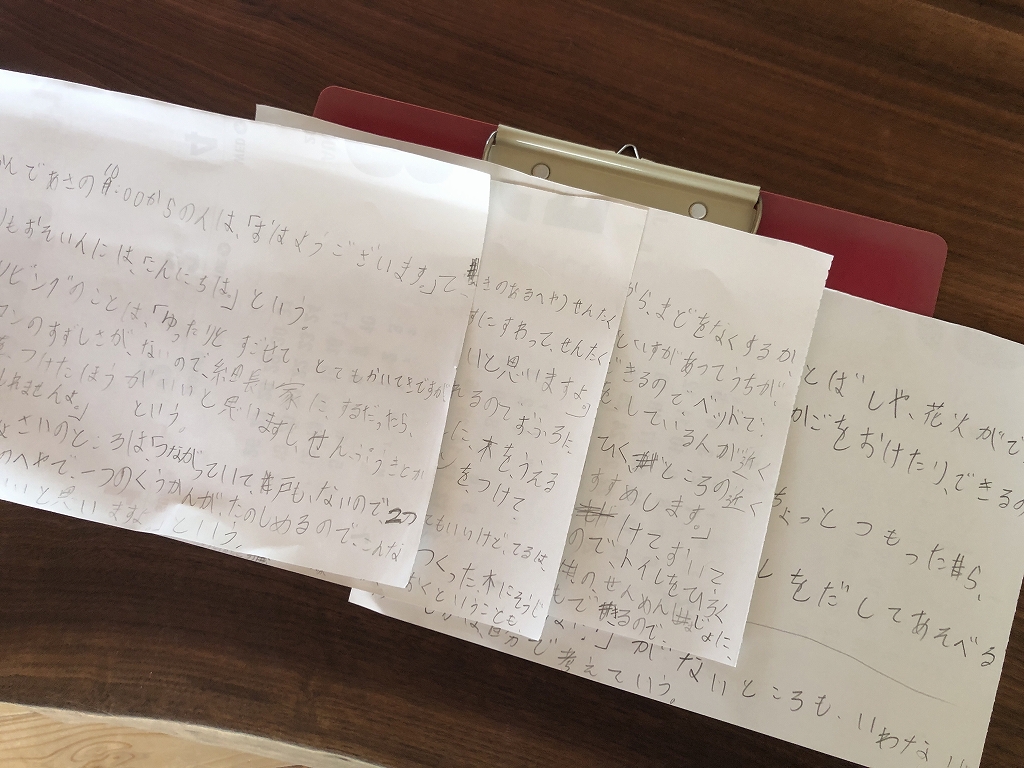 んであさの 9:00からの人は、「おはようございます。」て、
りもおそい人には、「こんにちは。」という。
リビングのことは、「ゆったりと すごせて、とてもかいてきですが
コンのすずしさが、ないので、細長い家に、するだったら、
をつけたほうがいいと思いますし、せんぷうきとか
しれませんよ。」 という。
なさいのところは「つながっていて、戸も、ないので、2つ
のへやで、一つのくうかんが、たのしめるので、こんな
いいと思いますよ。」という。
きのあるへやうせんたく
すにすわって、せんたく
いと思いますよ。」
れるのでおふろに
に、木をうえる
をつけて、
てもいいけど、てるは、
つくった木にそうじ
おくということも、
から、まどをなくするか、
といすがあってうちが、
できるのでベットで、
をしている人が近く
ていくところの近く
すすめします。」
けておいて
ので、トイレをひろく
のせんめんじょに
もで るので、
」がないところも、いわない
自分で考えていう。
とばしや、花火がで
かごをおけたり、できるの
ちょっとつもったら、
しをだしてあそべる